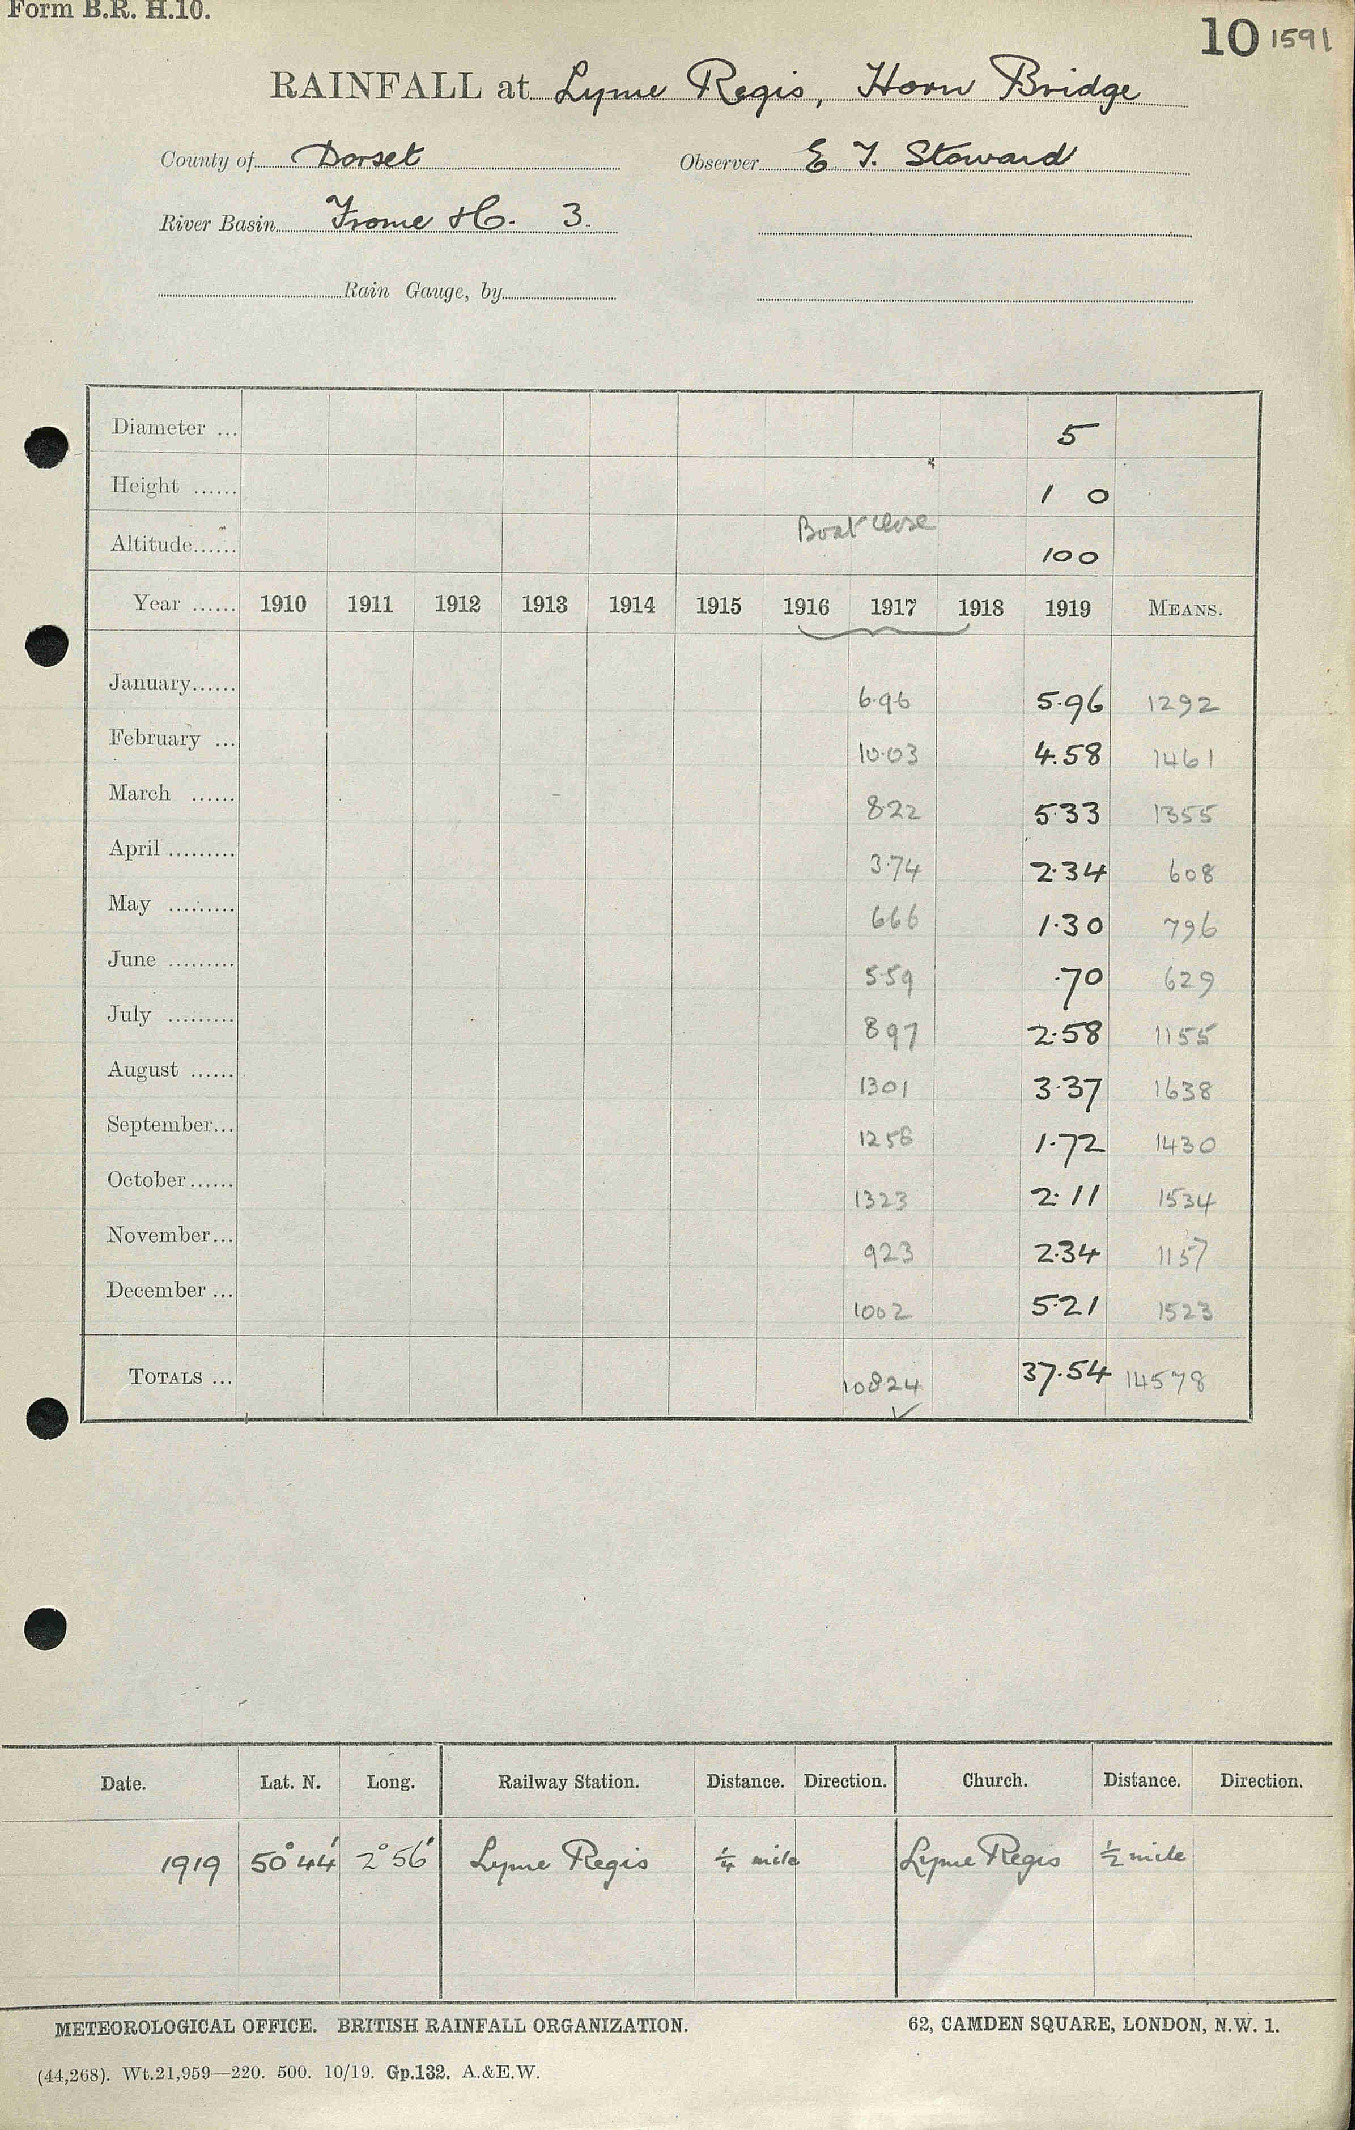 Form B.R. H.10.
10 1591
RAINFALL at Lyme Regis, Horn Bridge
County of Dorset Observer E. T. Stoward
River Basin Frome &c. 3.
Rain Gauge, by
Diameter ... 5
Height ...... 1 0
Boat Close
Altitude...... 100
Year ...... 1910 1911 1912 1913 1914 1915 1916 1917 1918 1919 MEANS.
January...... 6.96 5.96 1292
February ... 10.03 4.58 1461
March ...... 822 5.33 1355
April ......... 3.74 2.34 608
May ......... 666 1.30 796
June ......... 5.59 .70 629
July ......... 897 2.58 1155
August ...... 1301 3.37 1638
September... 1258 1.72 1430
October...... 1323 2.11 1534
November... 923 2.34 1157
December ... 1002 5.21 1523
TOTALS ... 10824 37.54 14578
Date. Lat. N. Long. Railway Station. Distance. Direction. Church. Distance. Direction.
1919 50° 44' 2° 56' Lyme Regis ¼ mile Lyme Regis ½ mile
METEOROLOGICAL OFFICE. BRITISH RAINFALL ORGANIZATION. 62, CAMDEN SQUARE, LONDON, N.W. 1.
(44,268). Wt.21,959—220. 500. 10/19. Gp.132. A.&E.W.